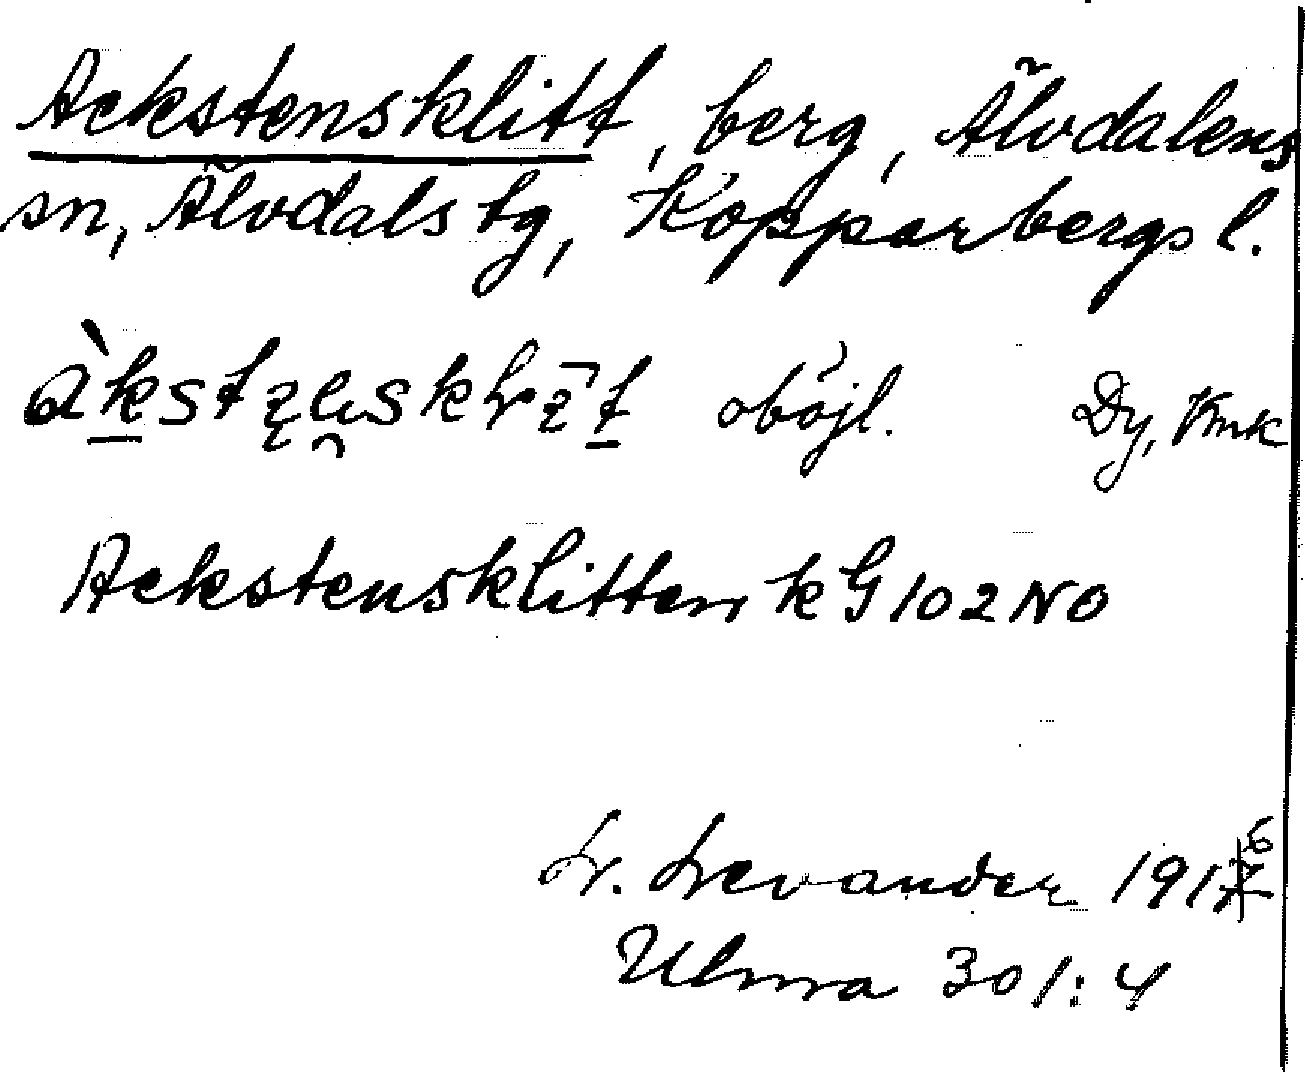 Ackstensklitt, berg, Älvdalens
sn, Älvdals tg, Kopparbergs l.
oböjl. Dy, Kmk
Ackstensklitten k G 102 NO
L. Levander 1916
Ulma 301:4